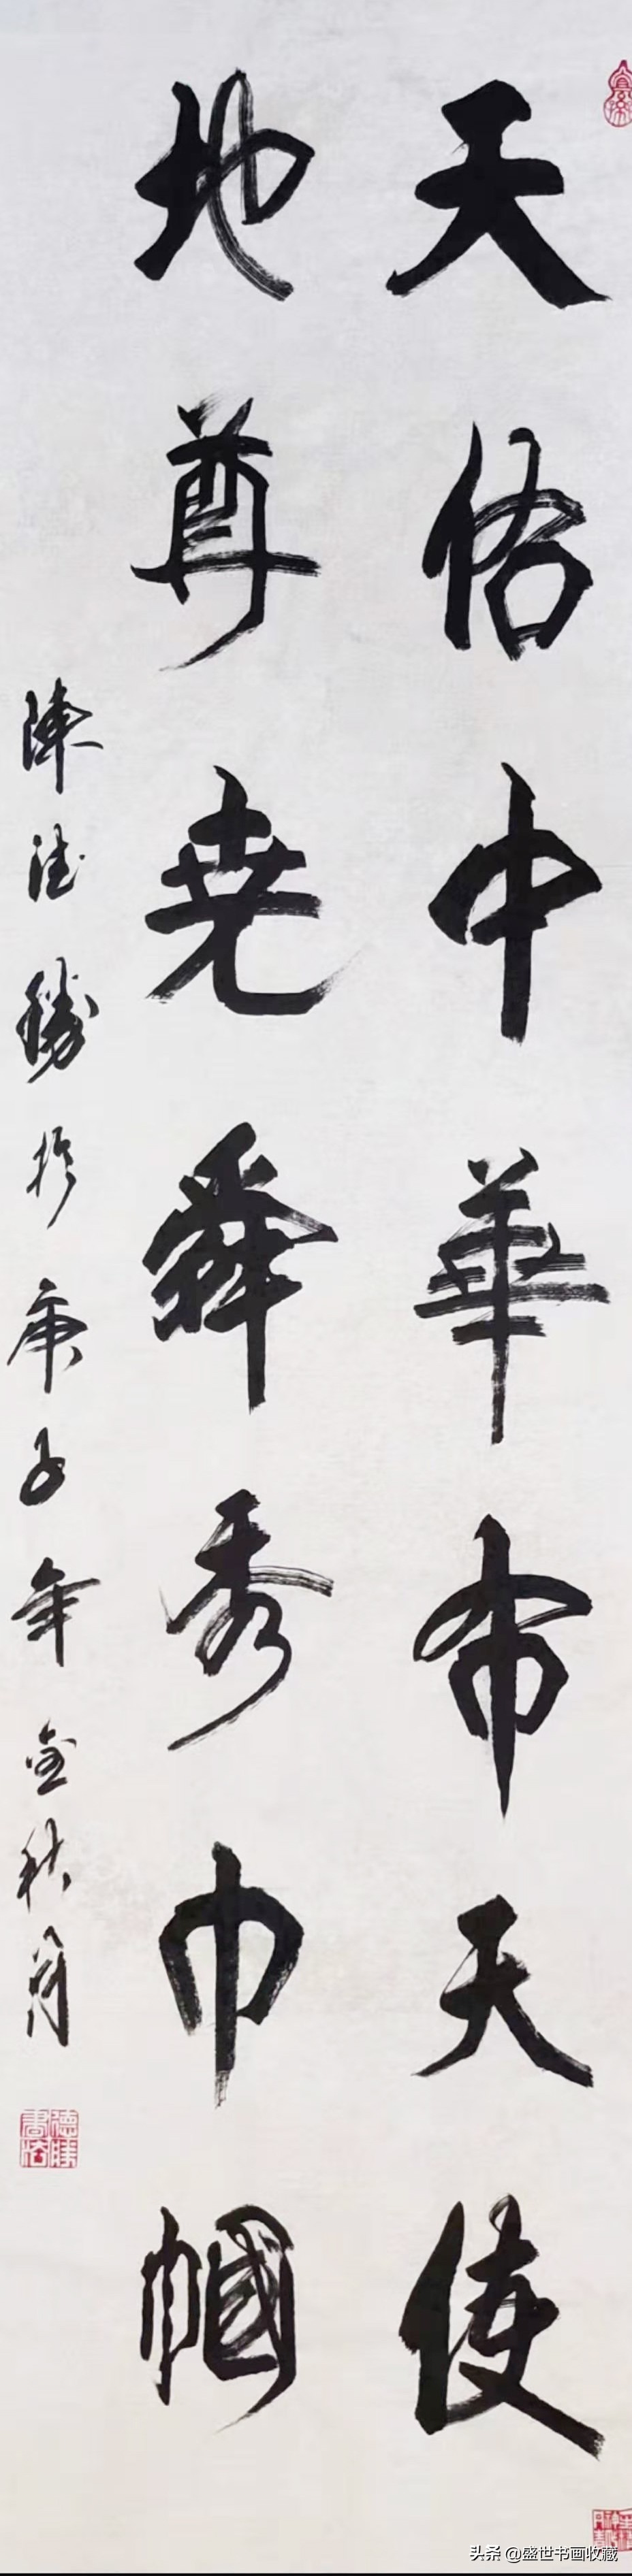 天佑中華布天使
地尊尭舜秀巾幗
陳德勝於庚子年金秋
德勝書法
头条 @盛世书画收藏